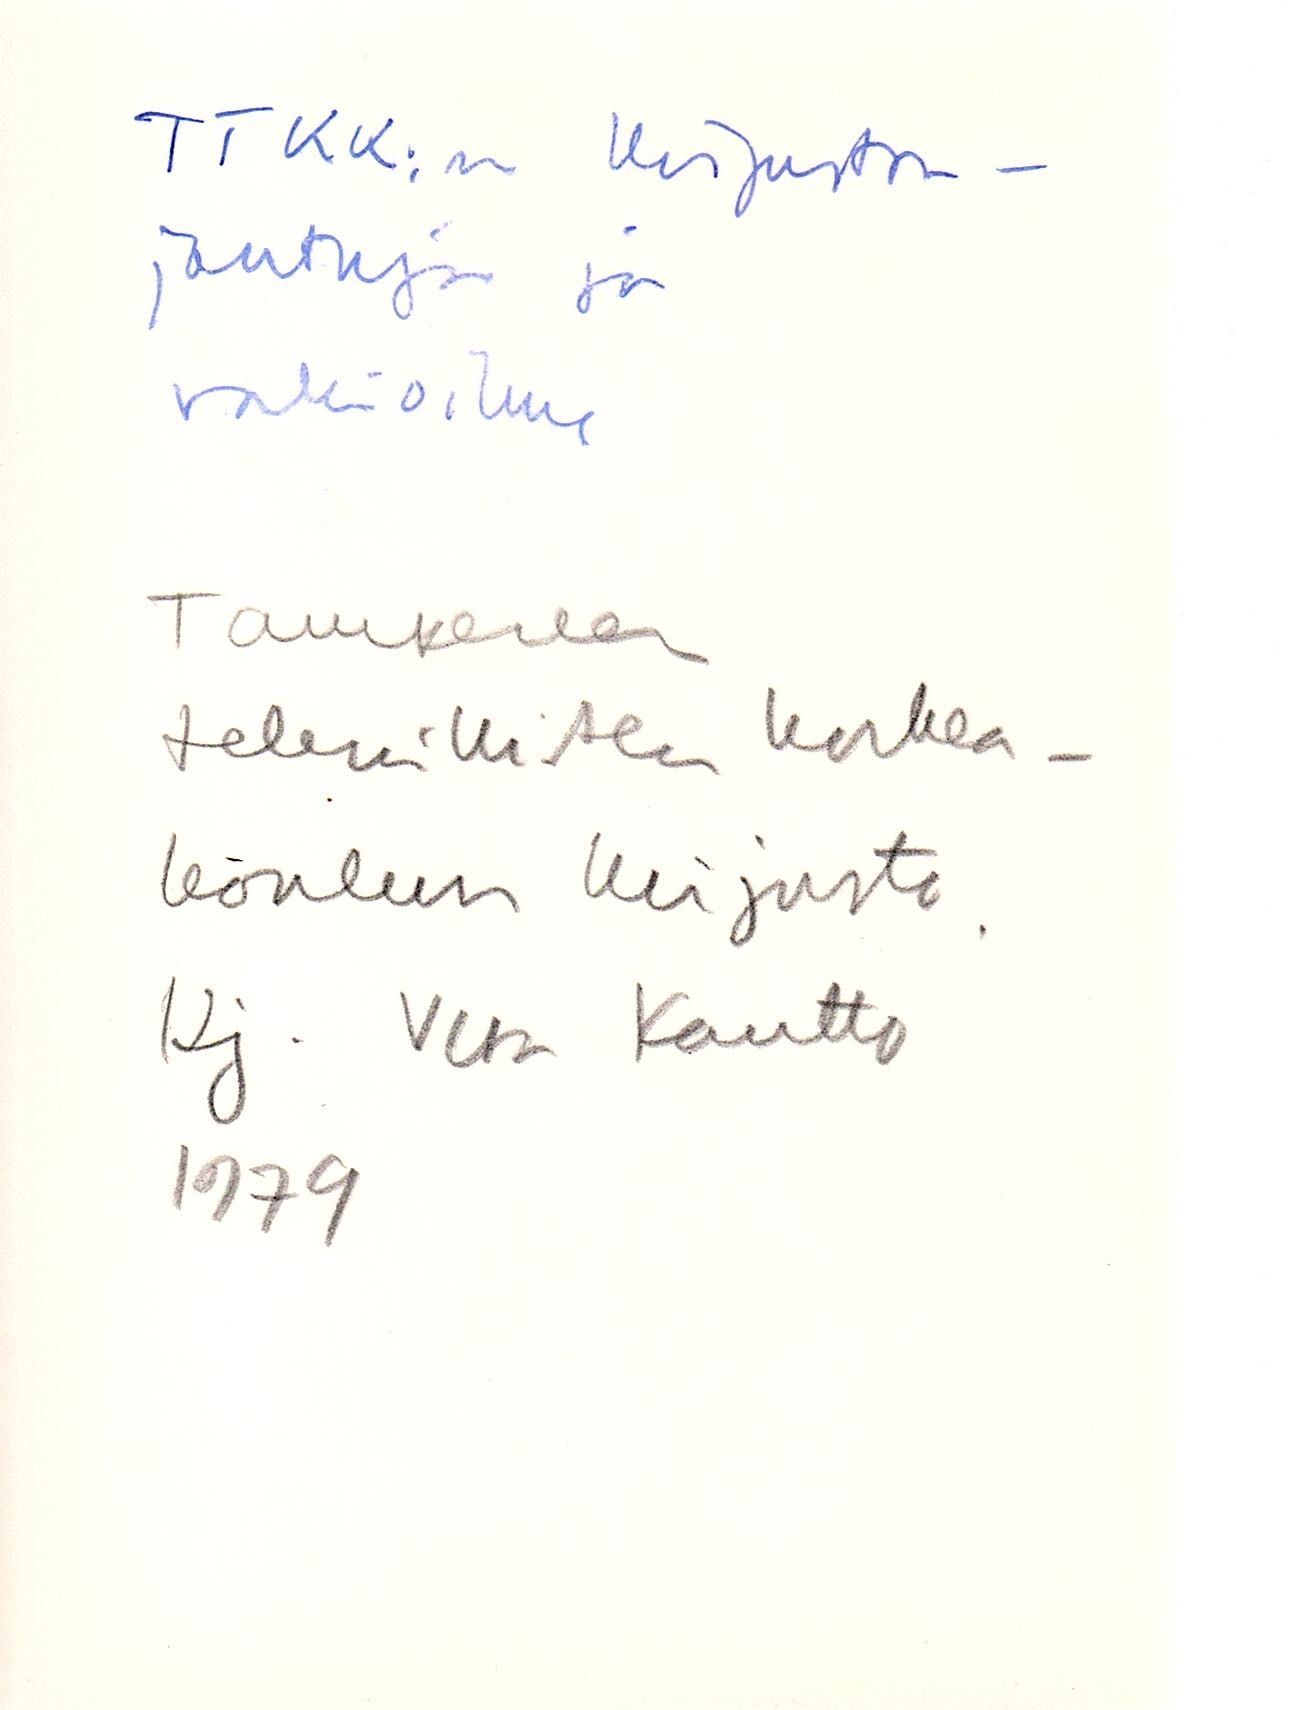 TTKK:n kirjaston-
johtaja ja
vakioilme
Tampereen
teknillisen korkea-
koulun kirjasto.
Kj. Vesa Kautto
1979